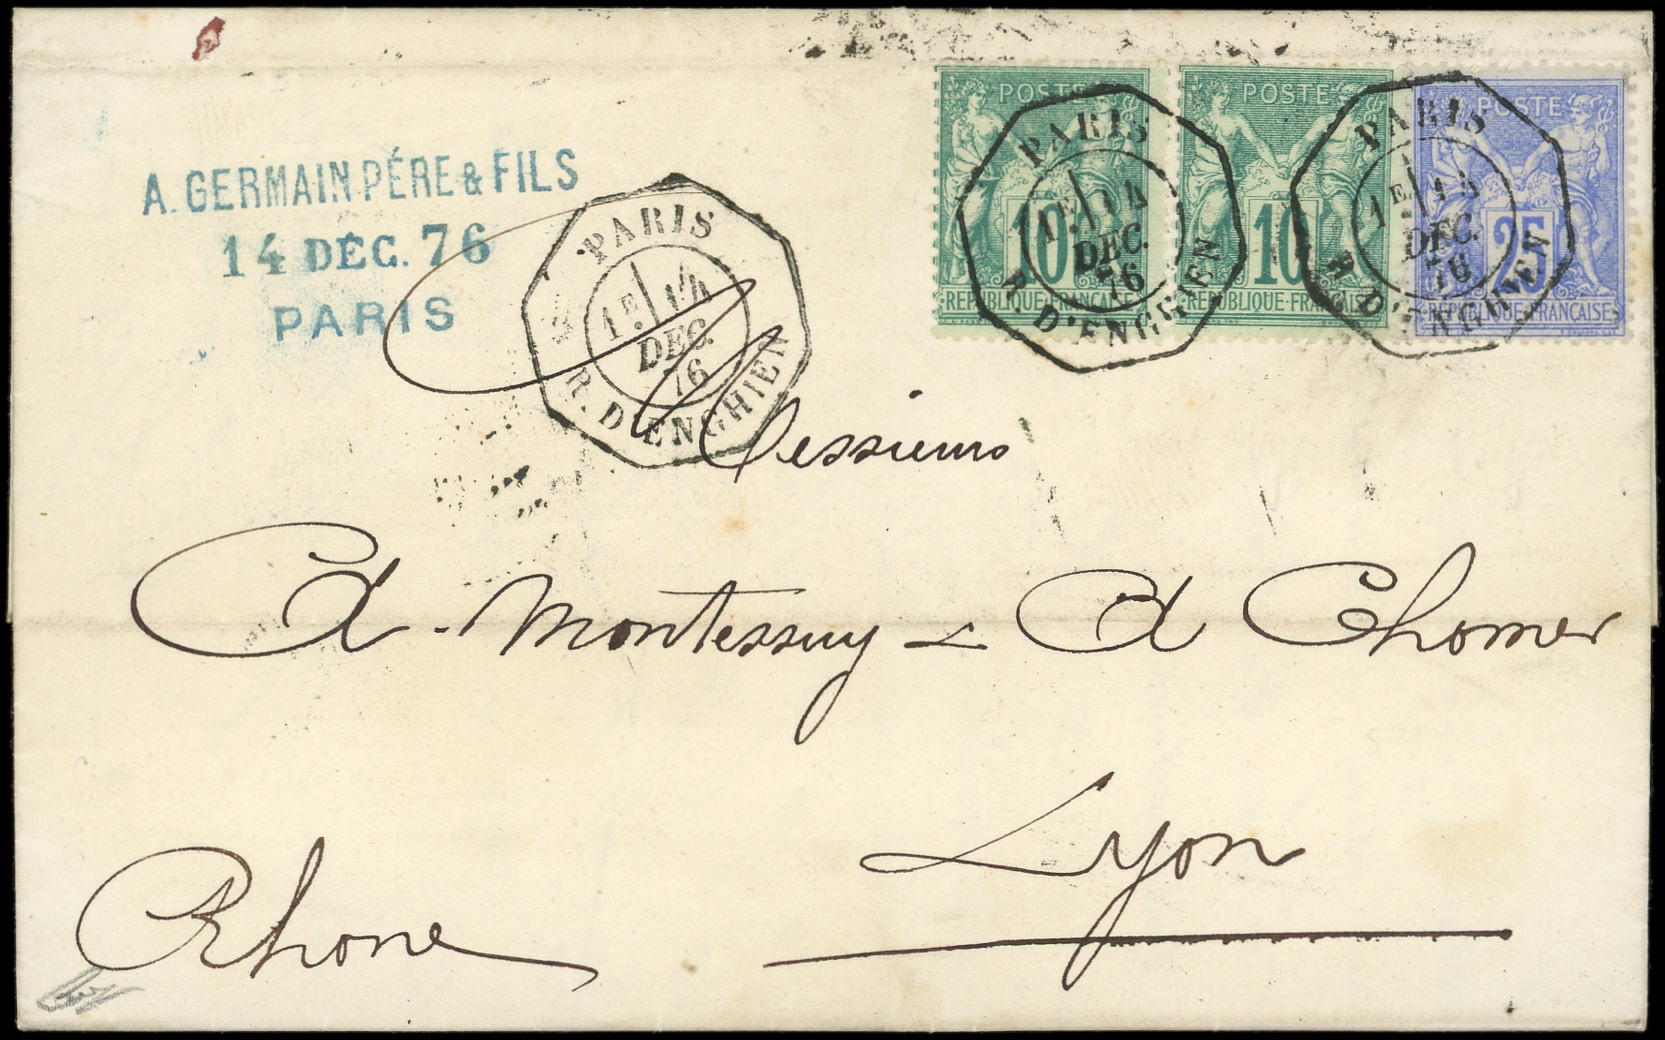 A. GERMAIN PÉRE & FILS
14 DÉC. 76
PARIS
PARIS
1E 14
DEC.
76
R. D'ENGHIEN
POSTE
10
REPUBLIQUE FRANÇAISE
POSTE
10
REPUBLIQUE FRANÇAISE
PARIS
1E 14
DEC.
76
R. D'ENGHIEN
POSTE
25
REPUBLIQUE FRANÇAISE
PARIS
1E 14
DEC.
76
R. D'ENGHIEN
Messieurs
A. Montessuy & A Chomer
Lyon
Rhone